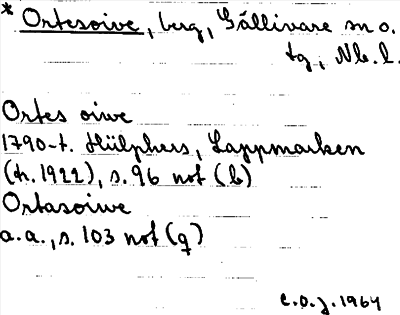 * Ortesoive, berg, Gällivare sn o.
tg, Nb. l.
Ortes oiwe
1790-t. Hülphers, Lappmarken
(tr. 1922), s. 96 not (b)
Ortasoiwe
a.a., s. 103 not (q)
C.O.J. 1964